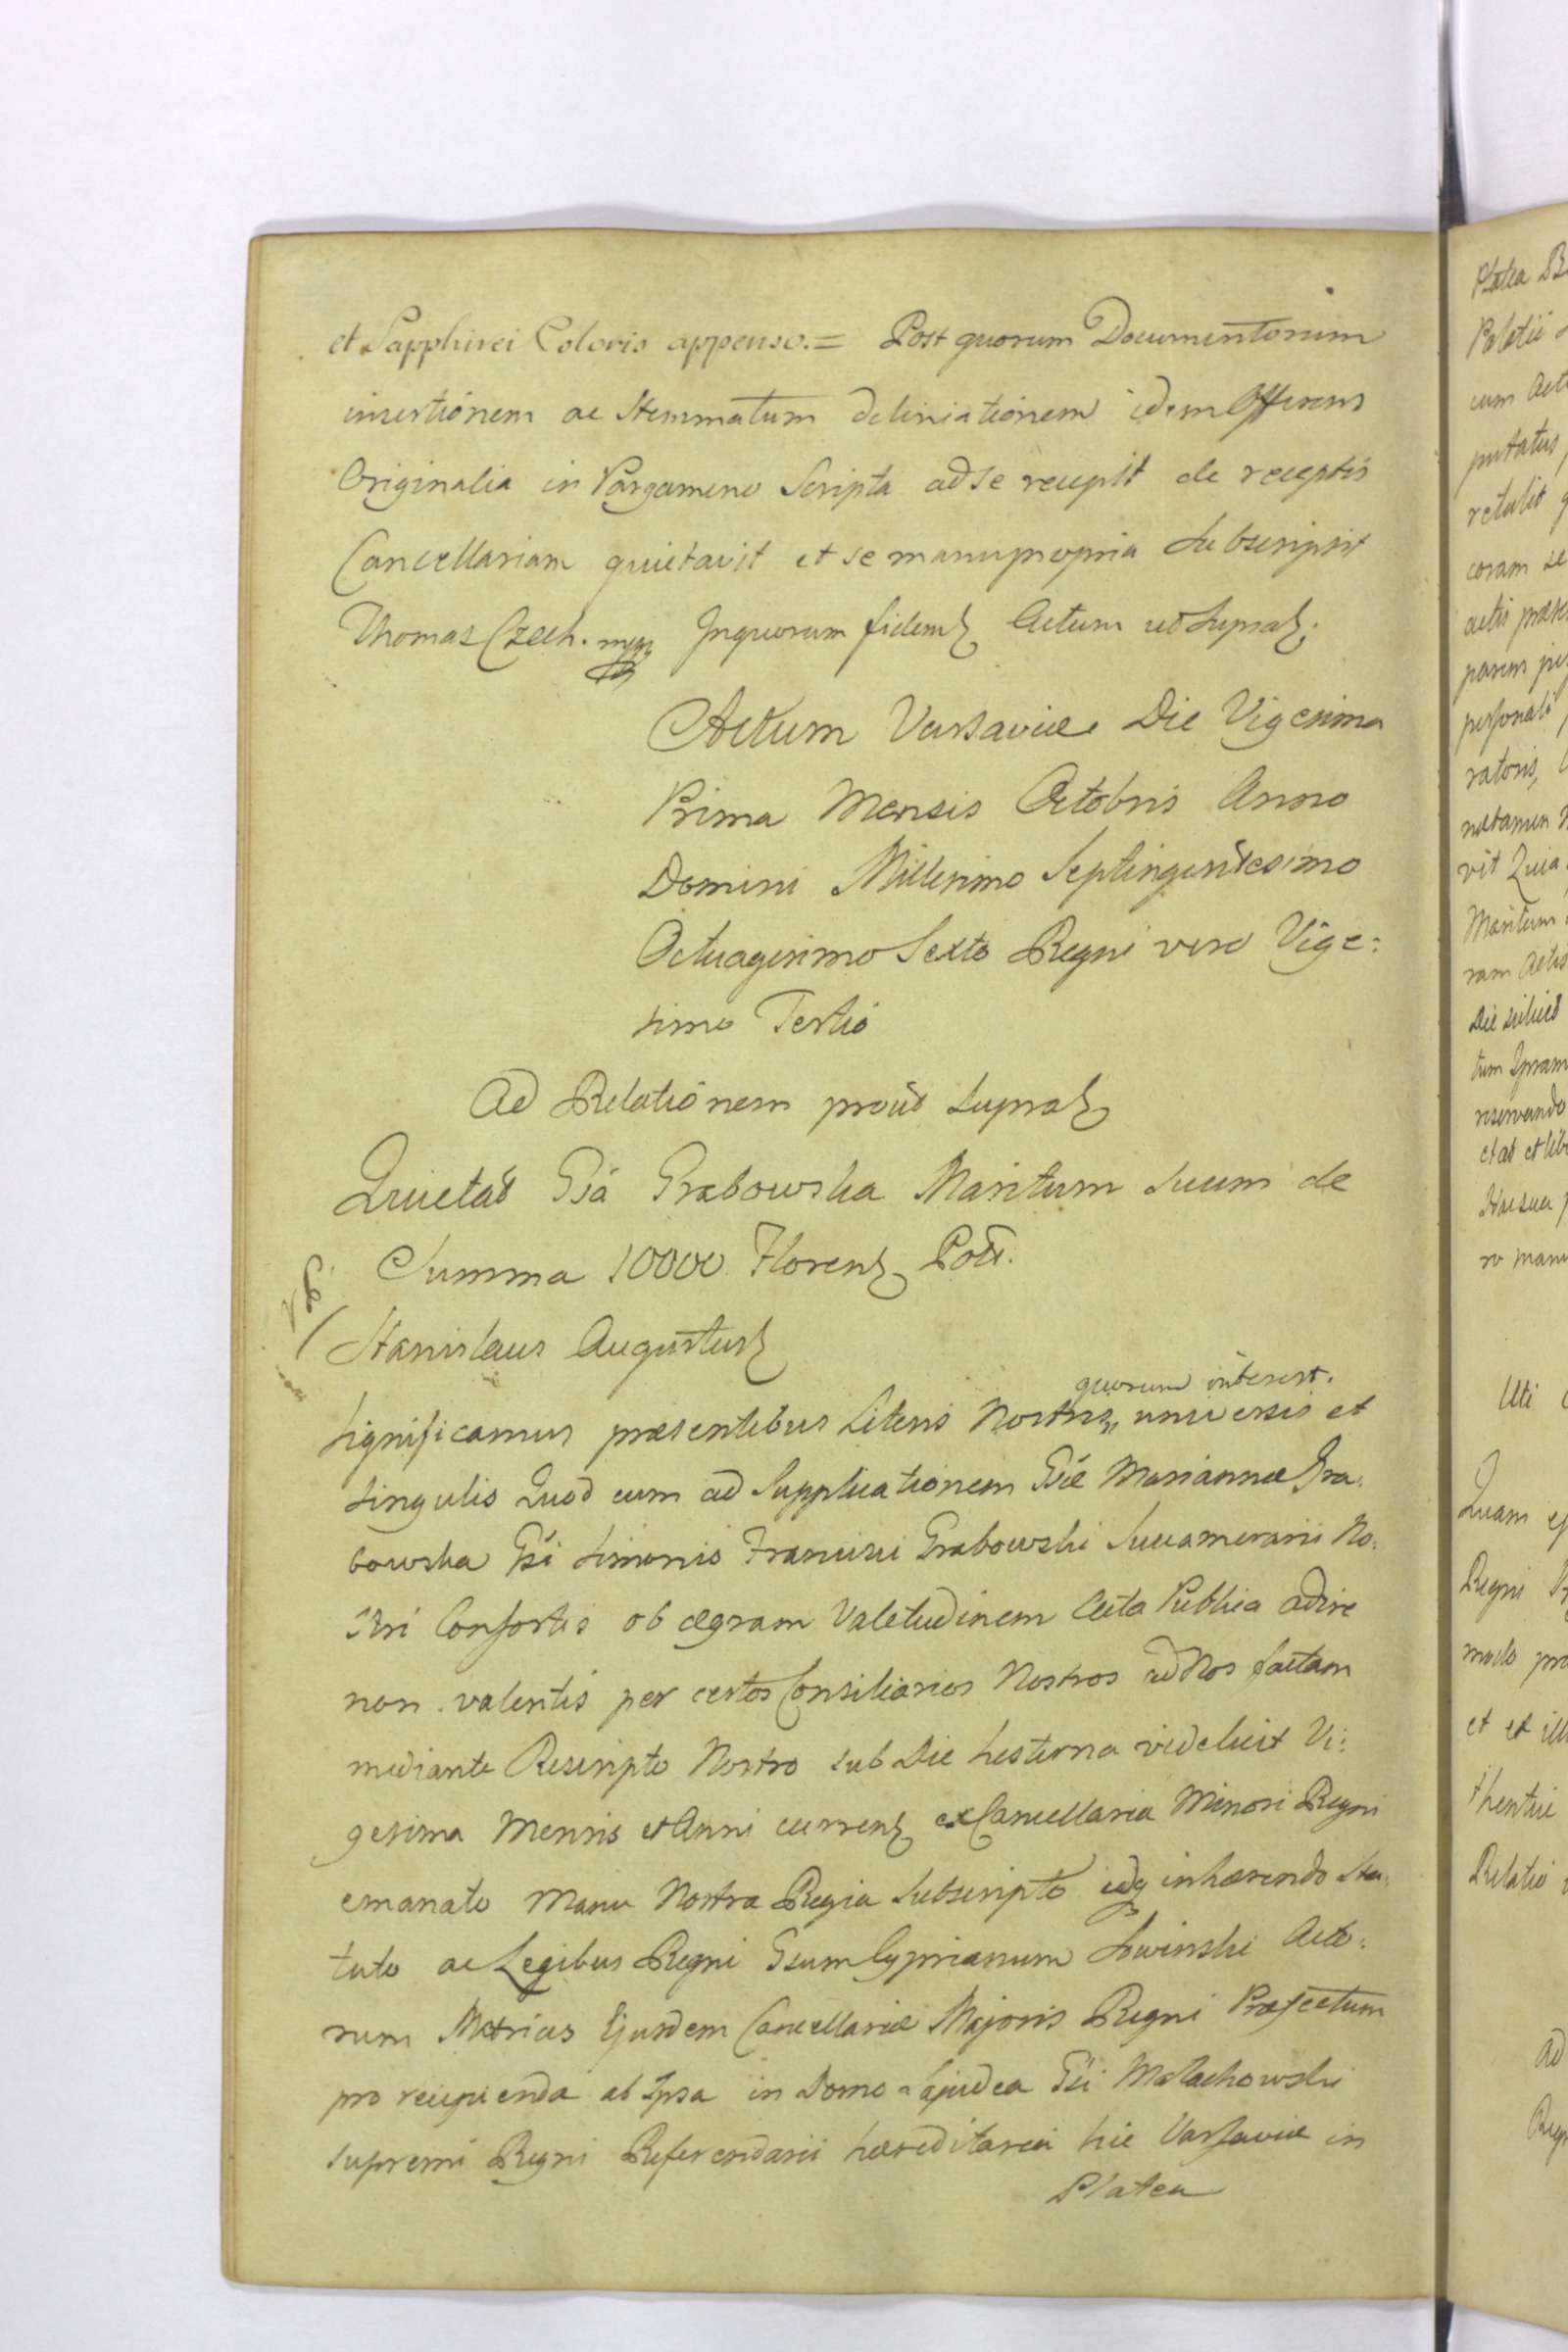 et Sapphirei Coloris appenso. = Post quorum Documentorum
insertionem ac Stemmatum deliniationem idem Offerens
Originalia in Pargameno Scripta ad se recepit de receptis
Cancellariam quietavit et se manu propria Subscripsit
Thomas Czech. mpp In quorum fidem Actum ut Supra
Actum Varsaviæ Die Vigesima
Prima Mensis Octobris Anno
Domini Millesimo Septingentesimo
Octuagesimo Sexto Regni vero Vige:
simo Tertio
Ad Relationem prout Supra
Quietat Gsa Grabowska Maritum Suum de
Summa 10000 Floren Poll.
Stanislaus Augustus
quorum interest.
Significamus præsentibus Literis Nostris, universis et
singulis Quod cum ad Supplicationem Gsæ Mariannæ Gra:
bowska Gsi Simonis Francisci Grabowski Succamerarii No:
stri Consortis ob ægram Valetudinem Acta Publica adire
non valentis per certos Consiliarios Nostros ad Nos factam
mediante Rescripto Nostro sub Die hesterna videlicet Vi:
gesima Mensis et Anni curren ex Cancellaria Minori Regni
emanato Manu Nostra Regia Subscripto idq inhærendo Sta:
tuto ac Legibus Regni Gsum Cyprianum Sowinski Acto:
rum Metrices Ejusdem Cancellariæ Majoris Regni Præfectum
pro recipienda ab Ipsa in Domo Gsi Małachowski
supremi Regni Referendarii hæreditaria hic Varsaviæ in
Platea
Platea
Palatii
cum
putatus
retulit
coram se
actis
parens
personali
ratoris,
vit Quia
Maritum
ram Actis
Die
tum Ipsam
reservando
etat et
ro manu
Uti
Quam
Regni
modo
et et
thentic
Relatio
Ad